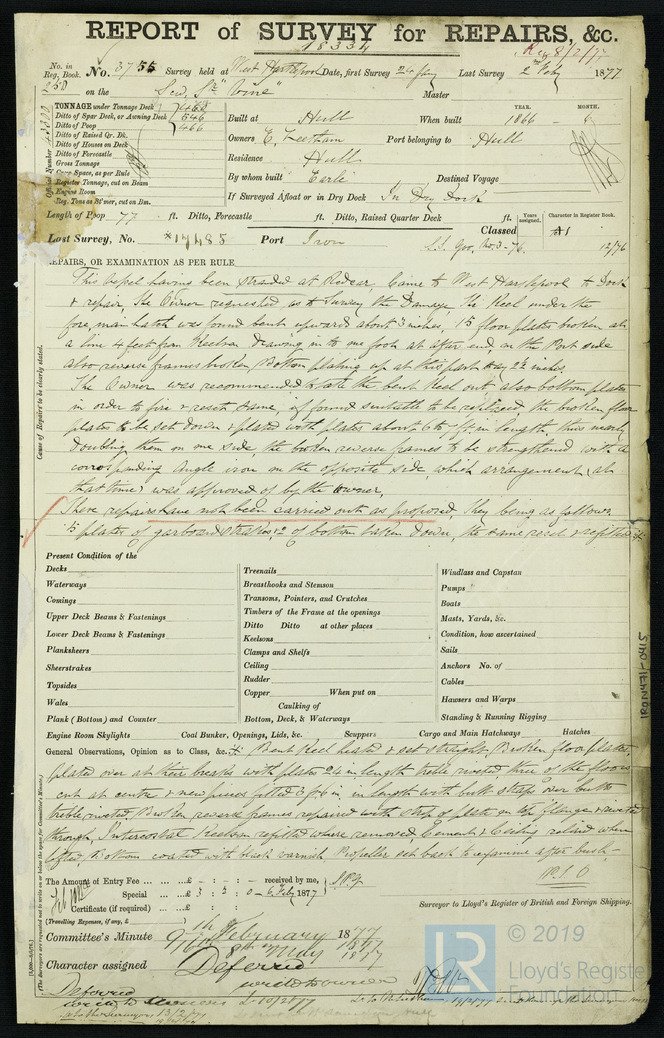 REPORT of SURVEY for REPAIRS, &c.
18334
Rec 8/2/77
No. in Reg. Book. No. 3755 Survey held at West Hartlepool Date, first Survey 24 Jany Last Survey 2 Feby 1877
on the Scr. Sr. Master
TONNAGE under Tonnage Deck 468
Ditto of Spar Deck, or Awning Deck 546
Ditto of Poop 466
Ditto of Raised Qr. Dk.
Ditto of Houses on Deck
Ditto of Forecastle
Gross Tonnage
Crew Space, as per Rule
Register Tonnage, cut on Beam
Engine Room
Reg. Tons as St'mer, cut on Bm.
Official Number
Built at Hull When built YEAR. 1866 MONTH. 6
Owners E. Leetham Port belonging to Hull
Residence Hull
By whom built Earle Destined Voyage
If Surveyed Afloat or in Dry Dock In Dry Dock
Length of Poop 77 ft. Ditto, Forecastle ft. Ditto, Raised Quarter Deck ft.
Years assigned. Character in Register Book.
Last Survey, No. *17485 Port Iron Classed A1
12/76
REPAIRS, OR EXAMINATION AS PER RULE,
Cause of Repairs to be clearly stated.
This vessel having been stranded at Redcar, came to West Hartlepool to Dock
& repair, the Owner requested us to Survey the Damage, the Keel under the
fore main hatch was found bent upwards about 3 inches, 15 floor plates broken at
a line 4 feet from Keelson drawing in to one foot at after end, on the Port side
also reverse frames broken, Bottom plating up at this part say 2½ inches.
The Owner was recommended to take the bent Keel out, also bottom plates
in order to fire & reset same, if found suitable to be replaced, the broken floor
plates to be set down & plated with plates about 6 to 7 ft. in length, thus nearly
doubling them on one side, the broken reverse frames to be strengthened with a
corresponding angle iron on the opposite side, which arrangement (at
that time) was approved of by the owner,
These repairs have not been carried out as proposed, they being as follows
15 plates of garboard strakes, & 2 of bottom taken down, the same reset & refitted
Present Condition of the
Decks
Waterways
Comings
Upper Deck Beams & Fastenings
Lower Deck Beams & Fastenings
Planksheers
Sheerstrakes
Topsides
Wales
Plank (Bottom) and Counter
Engine Room Skylights
Treenails
Breasthooks and Stemson
Transoms, Pointers, and Crutches
Timbers of the Frame at the openings
Ditto Ditto at other places
Keelsons
Clamps and Shelfs
Ceiling
Rudder
Copper When put on
Caulking of
Bottom, Deck, & Waterways
Coal Bunker, Openings, Lids, &c. Scuppers
Windlass and Capstan
Pumps
Boats
Masts, Yards, &c.
Condition, how ascertained
Sails
Anchors No. of
Cables
Hawsers and Warps
Standing & Running Rigging
Cargo and Main Hatchways Hatches
IRON471-0415
General Observations, Opinion as to Class, &c. Bent Keel heated & set straight, Broken floor plates
plated over at their breaks with plates 2½ in length treble riveted three of the floors
cut at centre & new pieces fitted 3 ft 6 in. in length with butt straps over butts
treble riveted, Broken reverse frames repaired with strap of plate on top flange & riveted
through, Intercostal Keelson refitted where removed, Cement & Ceiling relaid where
lifted, Bottom coated with black varnish, Propeller set back to examine after bush
The Amount of Entry Fee ... £ : : received by me,
Special ... £ 3 : 3 : 0 6 Feby 1877
Certificate (if required) ... £ : :
(Travelling Expenses, if any, £ )
Surveyor to Lloyd's Register of British and Foreign Shipping.
Committee's Minute 9th February 1877
8th May 1877
Character assigned Deferred
Deferred
© 2019
LR
Lloyd's Register
Foundation